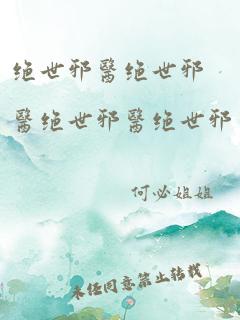 绝世邪醫绝世邪
醫绝世邪醫绝世邪
何必姐姐
未经同意禁止转载